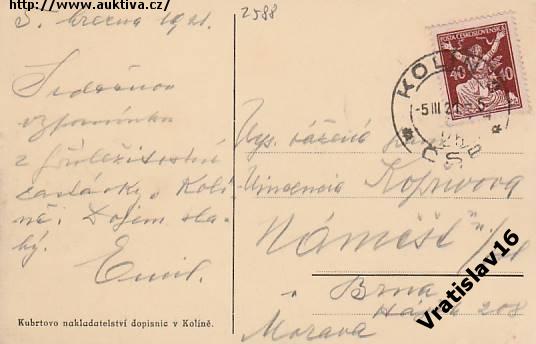 http://www.auktiva.cz/
5. března 1921.
2588
Srdečnou
vzpomínku
z příležitostné
zastávky v Kolí-
ně. Dojem sla-
bý.
Emil.
Kubrtovo nakladatelství dopisnic v Kolíně.
POŠTA ČESKOSLOVENSKÁ
40 40
KOLÍN
-5.III.21
Vys. vážená paní
Vincencia
Náměšť n/
Brna
208
Morava
Vratislav16